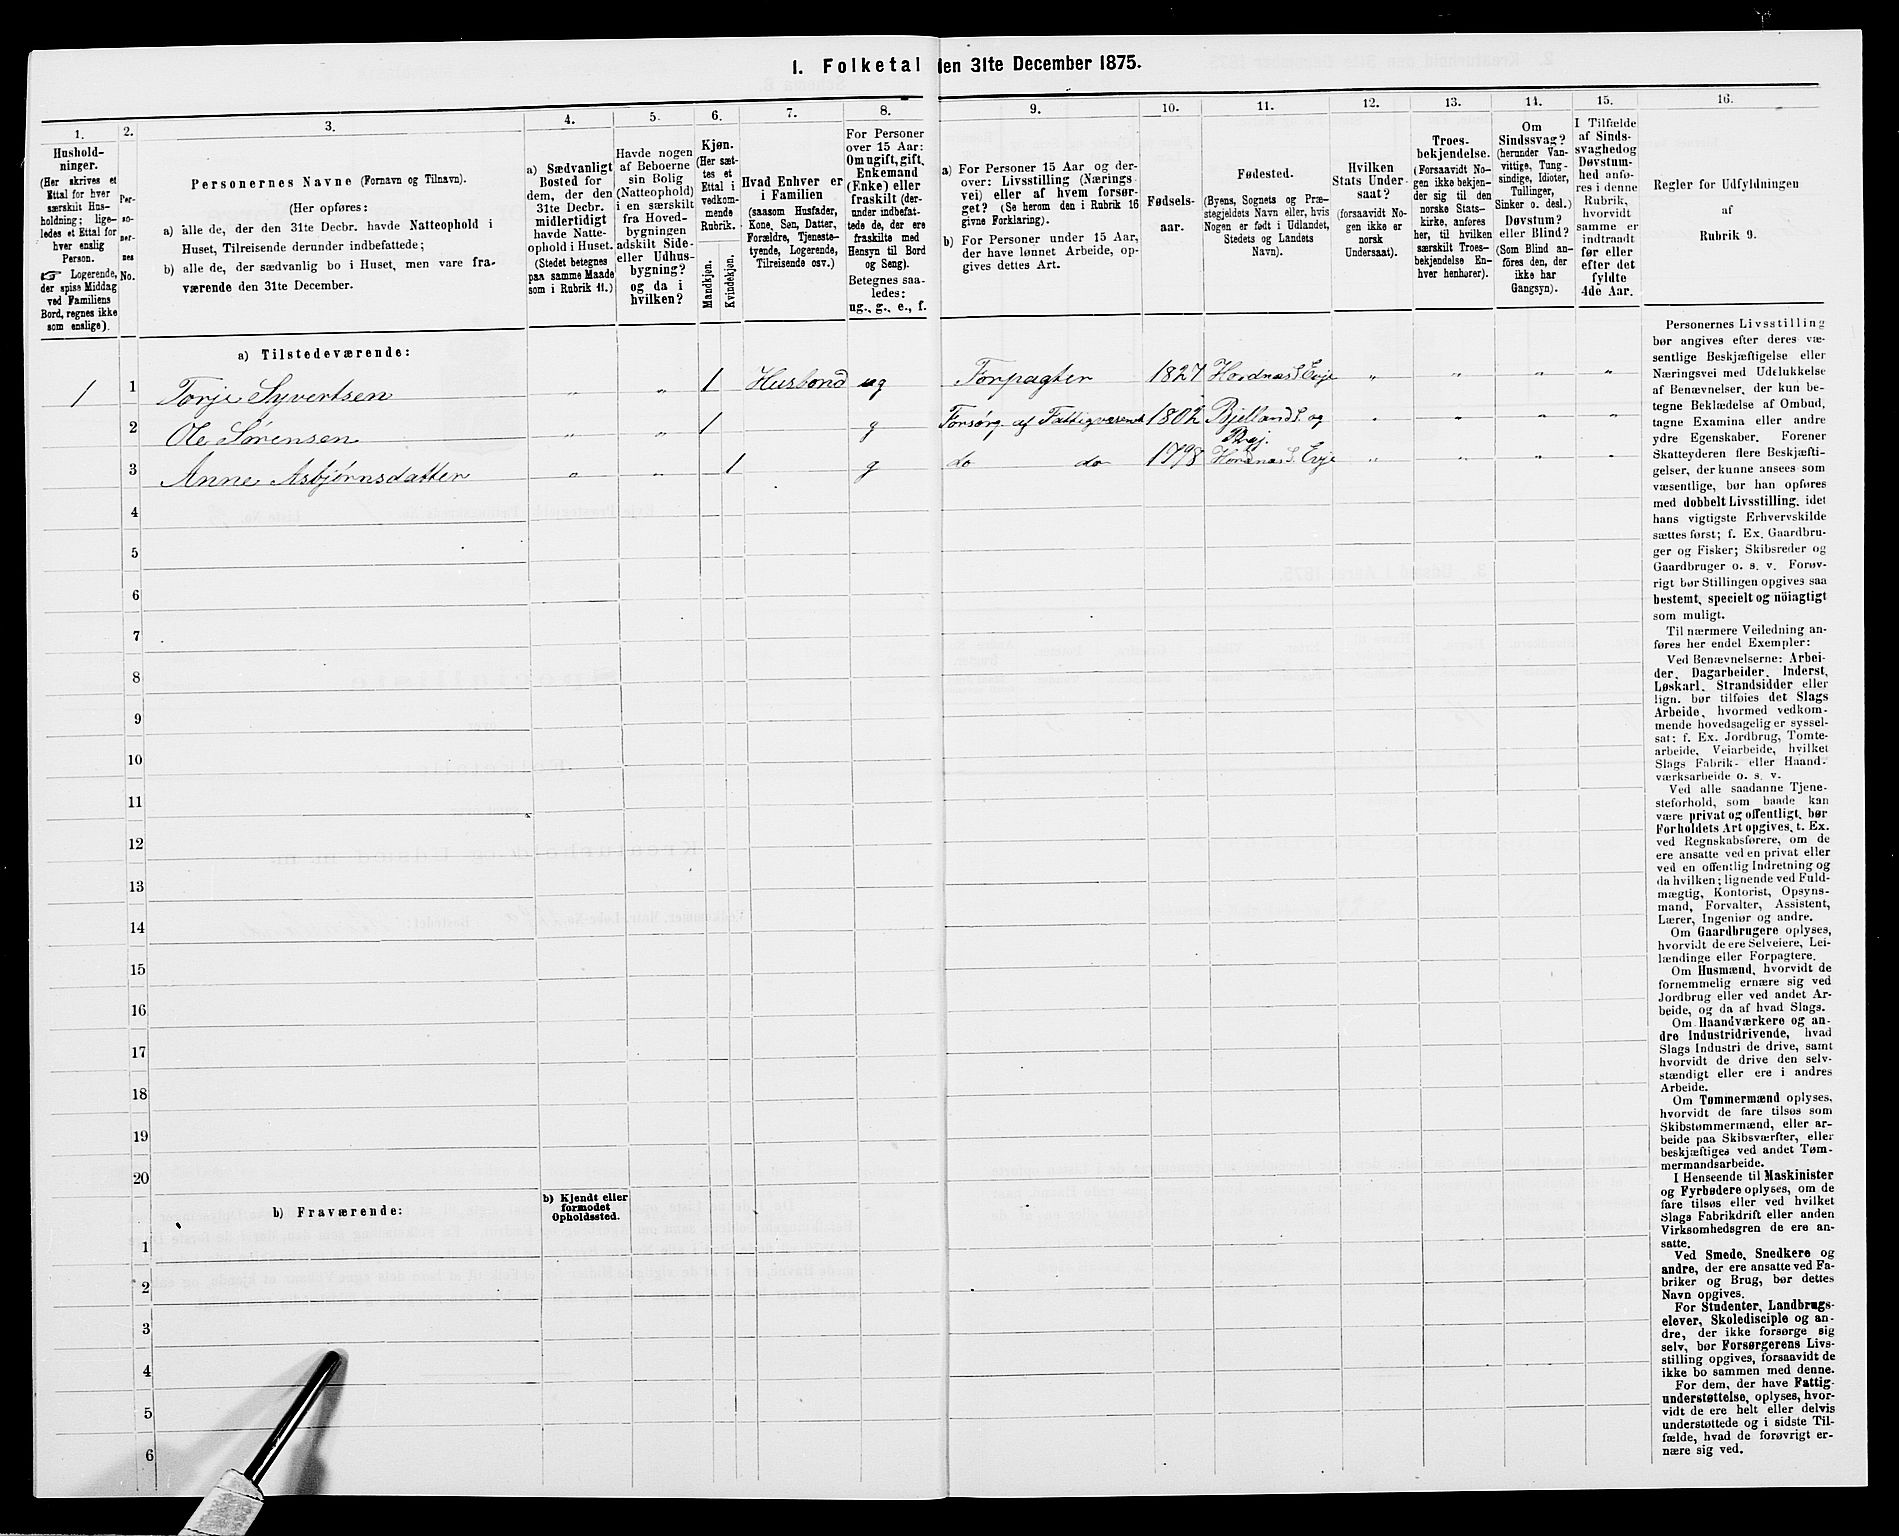 1. Folketal den 31te December 1875.
1.
2.
3.
4.
5.
6.
7.
8.
9.
10.
11.
12.
13.
14.
15.
16.
Hushold-
ninger.
(Her skrives et
Ettal for hver
særskilt Hus-
holdning; lige-
ledes et Ettal for
hver enslig
Person.
☞ Logerende,
der spise Middag
ved Familiens
Bord, regnes ikke
som enslige).
Per-
so-
ner-
nes
No.
Personernes Navne (Fornavn og Tilnavn).
(Her opføres:
a) alle de, der den 31te Decbr. havde Natteophold i
Huset, Tilreisende derunder indbefattede;
b) alle de, der sædvanlig bo i Huset, men vare fra-
værende den 31te December.
a) Sædvanligt
Bosted for
dem, der den
31te Decbr.
midlertidigt
havde Natte-
ophold i Huset.
(Stedet betegnes
paa samme Maade
som i Rubrik 11.)
Havde nogen
af Beboerne
sin Bolig
(Natteophold)
i en særskilt
fra Hoved-
bygningen
adskilt Side-
eller Udhus-
bygning?
og da i
hvilken?
Kjøn.
(Her sæt-
tes et
Ettal i
vedkom-
mende
Rubrik.
Mandkjøn.
Kvindekjøn.
Hvad Enhver er
i Familien
(saasom Husfader,
Kone, Søn, Datter,
Forældre, Tjeneste-
tyende, Logerende,
Tilreisende osv.)
For Personer
over 15 Aar:
Om ugift, gift,
Enkemand
(Enke) eller
fraskilt (der-
under indbefat-
tede de, der ere
fraskilte med
Hensyn til Bord
og Seng).
Betegnes saa-
ledes:
ug., g., e., f.
a) For Personer 15 Aar og der-
over: Livsstilling (Nærings-
vei) eller af hvem forsør-
get? (Se herom den i Rubrik 16
givne Forklaring).
b) For Personer under 15 Aar,
der have lønnet Arbeide, op-
gives dettes Art.
Fødsels-
aar.
Fødested.
(Byens, Sognets og Præ-
stegjeldets Navn eller, hvis
Nogen er født i Udlandet,
Stedets og Landets
Navn).
Hvilken
Stats Under-
saat?
(forsaavidt No-
gen ikke er
norsk
Undersaat).
Troes-
bekjendelse.
(Forsaavidt No-
gen ikke bekjen-
der sig til den
norske Stats-
kirke, anføres
her, til hvilken
særskilt Troes-
bekjendelse En-
hver henhører).
Om
Sindssvag?
(herunder Van-
vittige, Tung-
sindige, Idioter,
Tullinger,
Sinker o. desl.)
Døvstum?
eller Blind?
(Som Blind an-
føres den, der
ikke har
Gangsyn).
I Tilfælde
af Sinds-
svaghed og
Døvstum-
hed anfø-
res i denne
Rubrik,
hvorvidt
samme er
indtraadt
før eller
efter det
fyldte
4de Aar.
Regler for Udfyldningen
af
Rubrik 9.
a) Tilstedeværende:
1 1 Torje Syvertsen „ „ 1 Husbond ug Forpagter 1827 Hordnæs S. Evje „ „ „ „
2 Ole Sørensen „ „ 1 g Forsørg. af Fattigvæsenet 1802 Bjelland S. og „ „ „ „
Præj.
3 Anne Asbjørnsdatter „ „ 1 g do do 1798 Hordnæs S. Evje „ „ „ „
4
5
6
7
8
9
10
11
12
13
14
15
16
17
18
19
20
b) Fraværende:
b) Kjendt eller
formodet
Opholdssted.
1
2
3
4
5
6
Personernes Livsstilling
bør angives efter deres væ-
sentlige Beskjæftigelse eller
Næringsvei med Udelukkelse
af Benævnelser, der kun be-
tegne Beklædelse af Ombud,
tagne Examina eller andre
ydre Egenskaber. Forener
Skatteyderen flere Beskjæfti-
gelser, der kunne ansees som
væsentlige, bør han opføres
med dobbelt Livsstilling, idet
hans vigtigste Erhvervskilde
sættes først; f. Ex. Gaardbru-
ger og Fisker; Skibsreder og
Gaardbruger o. s. v. Forøv-
rigt bør Stillingen opgives saa
bestemt, specielt og nöiagtigt
som muligt.
Til nærmere Veiledning an-
føres her endel Exempler:
Ved Benævnelserne: Arbei-
der, Dagarbeider, Inderst,
Løskarl, Strandsidder eller
lign. bør tilføies det Slags
Arbeide, hvormed vedkom-
mende hovedsagelig er syssel-
sat; f. Ex. Jordbrug, Tomte-
arbeide, Veiarbeide, hvilket
Slags Fabrik- eller Haand-
værksarbeide o. s. v.
Ved alle saadanne Tjene-
steforhold, som baade kan
være privat og offentligt, bør
Forholdets Art opgives, t. Ex.
ved Regnskabsførere, om de
ere ansatte ved en privat eller
ved en offentlig Indretning og
da hvilken; lignende ved Fuld-
mægtig, Kontorist, Opsyns-
mand, Forvalter, Assistent,
Lærer, Ingeniør og andre.
Om Gaardbrugere oplyses,
hvorvidt de ere Selveiere, Lei-
lændinge eller Forpagtere.
Om Husmænd, hvorvidt de
fornemmelig ernære sig ved
Jordbrug eller ved andet Ar-
beide, og da af hvad Slags.
Om Haandværkere og an-
dre Industridrivende, hvad
Slags Industri de drive, samt
hvorvidt de drive den selv-
stændigt eller ere i andres
Arbeide.
Om Tømmermænd oplyses,
hvorvidt de fare tilsøs som
Skibstømmermænd, eller ar-
beide paa Skibsværfter, eller
beskjæftiges ved andet Tøm-
mermandsarbeide.
I Henseende til Maskinister
og Fyrbødere oplyses, om de
fare tilsøs eller ved hvilket
Slags Fabrikdrift eller anden
Virksomhedsgren de ere an-
satte.
Ved Smede, Snedkere og
andre, der ere ansatte ved Fa-
briker og Brug, bør dettes
Navn opgives.
For Studenter, Landbrugs-
elever, Skoledisciple og an-
dre, der ikke forsørge sig
selv, bør Forsørgerens Livs-
stilling opgives, forsaavidt de
ikke bo sammen med denne.
For dem, der have Fattig-
understøttelse, oplyses, hvor-
vidt de ere helt eller delvis
understøttede og i sidste Til-
fælde, hvad de forøvrigt er-
nære sig ved.